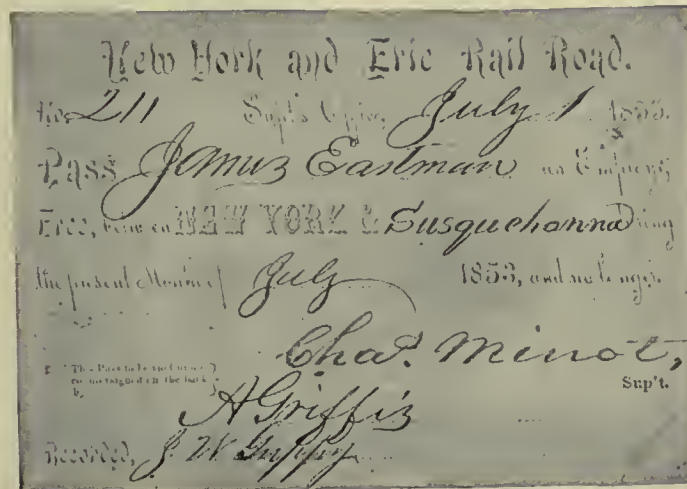 New York and Erie Rail Road.
No. 211 Sup't's Office, July 1 1853.
Pass James Eastman an Employe,
Free, between NEW YORK & Susquehanna during
the present Month of July 1853, and no longer.
Chas. Minot,
Sup't.
This Pass to be
signed on the back
by
A Griffiz
Recorded, J. W. Guppy